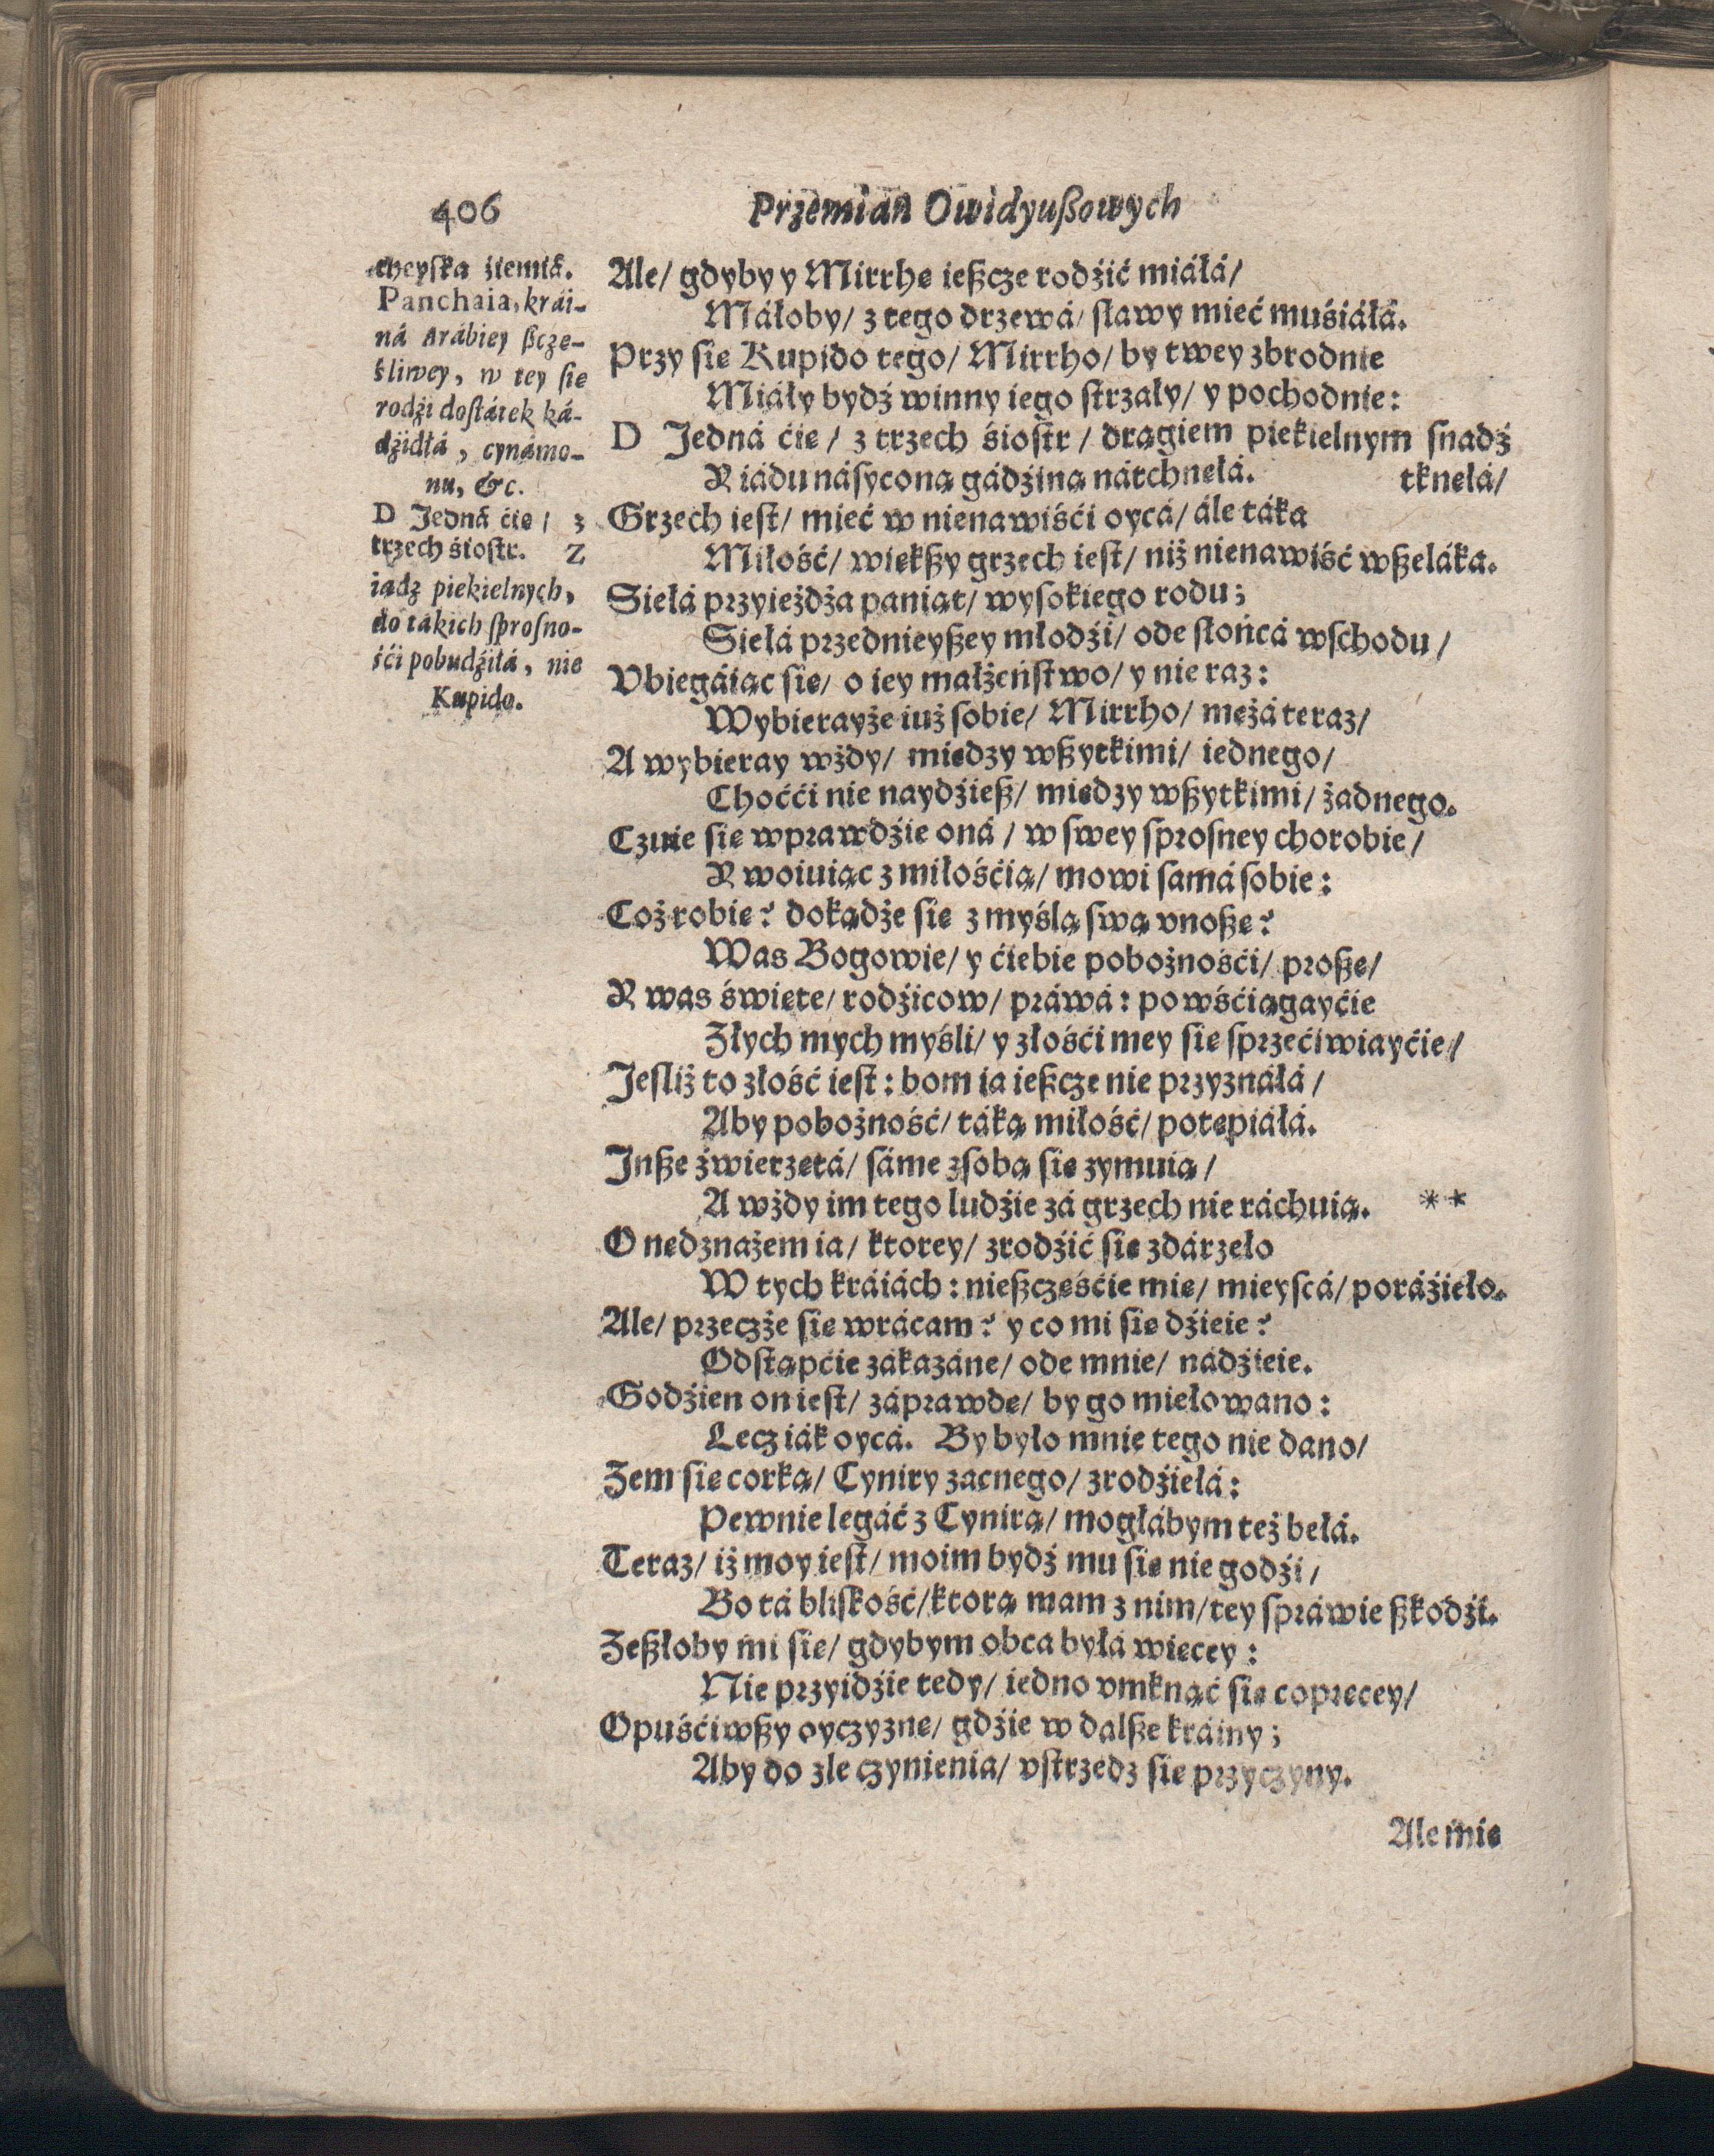 406
Przemian Owidyußowych
cheyska źiemiá.
Panchaia, krái-
ná Arábiey ßcze-
śliwey, w tey sie
rodźi dostátek ká-
dźidłá, cynámo-
nu, &c.
D Jedná ćie / z
trzech śiostr. Z
iądz piekielnych,
do tákich sprosno-
śći pobudźiłá, nie
Kupido.
Ale/ gdyby y Mirrhę ießcze rodźić miáłá/
Máłoby/ z tego drzewá/ sławy mieć muśiáłá.
Przy się Kupido tego/ Mirrho/ by twey zbrodnie
Miáły bydź winny iego strzały/ y pochodnie:
D Jedná ćię / z trzech śiostr / drągiem piekielnym snadź
tknęłá/
Y iádu násyconą gádźiną nátchnęłá.
Grzech iest/ mieć w nienawiśći oycá/ ále táka
Miłość/ więkßy grzech iest/ niż nienawiść wßeláka.
Siełá przyieżdża paniąt/ wysokiego rodu;
Siełá przednieyßey młodźi/ ode słońcá wschodu /
Vbiegáiąc się/ o iey małżeństwo/ y nie raz:
Wybierayże iuż sobie/ Mirrho/ mężá teraz/
A wybieray wżdy/ między wßytkimi/ iednego/
Choćći nie naydźieß/ między wßytkimi/ żadnego.
Czuie się wprawdźie oná / w swey sprosney chorobie/
Y woiuiąc z miłośćią/ mowi samá sobie:
Coż robię? dokądże się z myślą swą vnoßę?
Was Bogowie/ y ćiebie pobożnośći/ proßę/
Y was święte/ rodźicow/ práwá: powśćiągayćie
Złych mych myśli/ y złośći mey się sprzećiwiayćie/
Jesliż to złość iest: bom ia ießcze nie przyznáłá /
Aby pobożność/ táką miłość/ potępiáłá.
Jnße źwierzętá/ sáme z sobą się zymuią /
A wżdy im tego ludźie zá grzech nie ráchuią. **
O nędznażem ia/ ktorey/ zrodźić się zdárzeło
W tych kráiách: nießczęśćie mię/ mieyscá/ poráźieło.
Ale/ przeczże się wrácam? y co mi się dźieie?
Odstąpćie zákazáne/ ode mnie/ nádźieie.
Godźien on iest/ záprawdę/ by go miełowano:
Lecz iák oycá. By było mnie tego nie dano/
Żem się corką/ Cyniry zacnego/ zrodźiełá:
Pewnie legáć z Cynirą/ mogłábym też bełá.
Teraz/ iż moy iest/ moim bydź mu się nie godźi /
Bo tá bliskość/ktorą mam z nim/tey spráwie ßkodźi.
Zeßłoby mi się/ gdybym obca byłá więcey:
Nie przyidźie tedy/ iedno vmknąć się coprecey/
Opuśćiwßy oyczyznę/ gdźie w dalße kráiny;
Aby do zle czynienia/ vstrzedz się przyczyny.
Ale mię